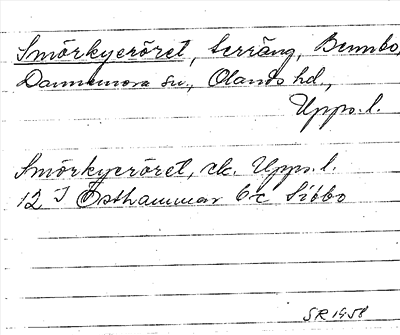 Smörkyeröret, terräng, Bennbo,
Dannemora sn., Olands hd,
Upps. l.
Smörkyeröret, ek. Upps. l.
12 I Östhammar 6c Sibbo
SR 1958